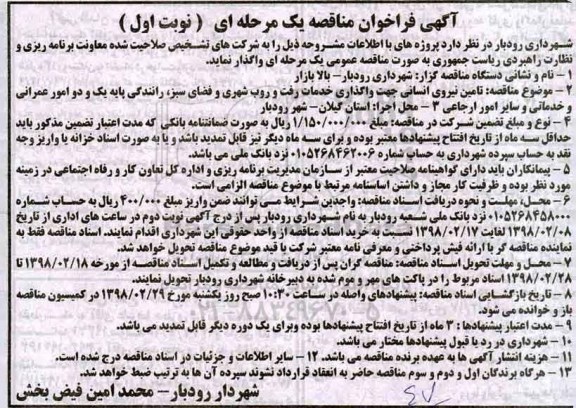 آگهی فراخوان مناقصه یک مرحله ای ( نوبت اول )
شهرداری رودبار در نظر دارد پروژه های با اطلاعات مشروحه ذیل را به شرکت های تشخیص صلاحیت شده معاونت برنامه ریزی و
نظارت راهبردی ریاست جمهوری به صورت مناقصه عمومی یک مرحله ای واگذار نماید.
۱ – نام و نشانی دستگاه مناقصه گزار: شهرداری رودبار– بالا بازار
۲ – موضوع مناقصه: تامین نیروی انسانی جهت واگذاری خدمات رفت و روب شهری و فضای سبز، رانندگی پایه یک و دو امور عمرانی
و خدماتی و سایر امور ارجاعی ۳ – محل اجرا: استان گیلان – شهر رودبار
۴ – نوع و مبلغ تضمین شرکت در مناقصه: مبلغ ۱/۱۵۰/۰۰۰/۰۰۰ ریال به صورت ضمانتنامه بانکی که مدت اعتبار تضمین مذکور باید
حداقل سه ماه از تاریخ افتتاح پیشنهادها معتبر بوده و برای سه ماه دیگر نیز قابل تمدید باشد و یا به صورت اسناد خزانه یا واریز وجه
نقد به حساب سپرده شهرداری به حساب شماره ۰۱۰۵۲۶۸۴۶۲۰۰۶ نزد بانک ملی می باشد.
۵ – پیمانکاران باید دارای گواهینامه صلاحیت معتبر از سازمان مدیریت برنامه ریزی و اداره کل تعاون کار و رفاه اجتماعی در زمینه
مورد نظر بوده و ظرفیت کار مجاز و داشتن اساسنامه مرتبط با موضوع مناقصه الزامی است.
۶ – محل، مهلت و نحوه دریافت اسناد مناقصه: واجدین شرایط می توانند ضمن واریز مبلغ ۴۰۰/۰۰۰ ریال به حساب شماره
۰۱۰۵۲۶۸۴۵۸۰۰۰ نزد بانک ملی شعبه رودبار به نام شهرداری رودبار پس از درج آگهی نوبت دوم در ساعت های اداری از تاریخ
۱۳۹۸/۰۲/۰۸ لغایت ۱۳۹۸/۰۲/۱۷ نسبت به خرید اسناد مناقصه از واحد حقوقی این شهرداری اقدام نمایند. اسناد مناقصه فقط به
نماینده مناقصه گر با ارائه فیش پرداختی و معرفی نامه معتبر شرکت با قید موضوع مناقصه تحویل خواهد شد.
۷ – محل و مهلت تحویل اسناد مناقصه: مناقصه گران پس از دریافت و مطالعه و تکمیل اسناد مناقصه از مورخه ۱۳۹۸/۰۲/۱۸ تا
۱۳۹۸/۰۲/۲۸ اسناد مربوط را در پاکت های مهر و موم شده به دبیرخانه شهرداری رودبار تحویل نمایند.
۸ – تاریخ بازگشایی اسناد مناقصه: پیشنهادهای واصله در ساعت ۱۰:۳۰ صبح روز یکشنبه مورخ ۱۳۹۸/۰۲/۲۹ در کمیسیون مناقصه
باز و خوانده می شود.
۹ – مدت اعتبار پیشنهادها : ۳ ماه از تاریخ افتتاح پیشنهادها بوده وبرای یک دوره دیگر قابل تمدید می باشد.
۱۰ – شهرداری در رد یا قبول پیشنهادها مختار می باشد.
۱۱ – هزینه انتشار آگهی ها به عهده برنده مناقصه می باشد. ۱۲ – سایر اطلاعات و جزئیات در اسناد مناقصه درج شده است.
۱۳ – هرگاه برندگان اول و دوم و سوم مناقصه حاضر به انعقاد قرارداد نشوند سپرده آن ها به ترتیب ضبط خواهد شد.
شهردار رودبار – محمد امین فیض بخش